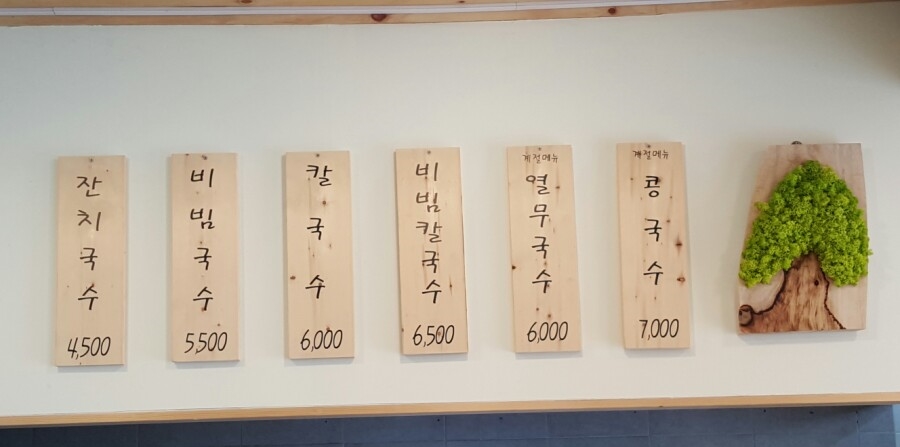 잔치국수
4,500
비빔국수
5,500
칼국수
6,000
비빔칼국수
6,500
계절메뉴
열무국수
6,000
계절메뉴
콩국수
7,000